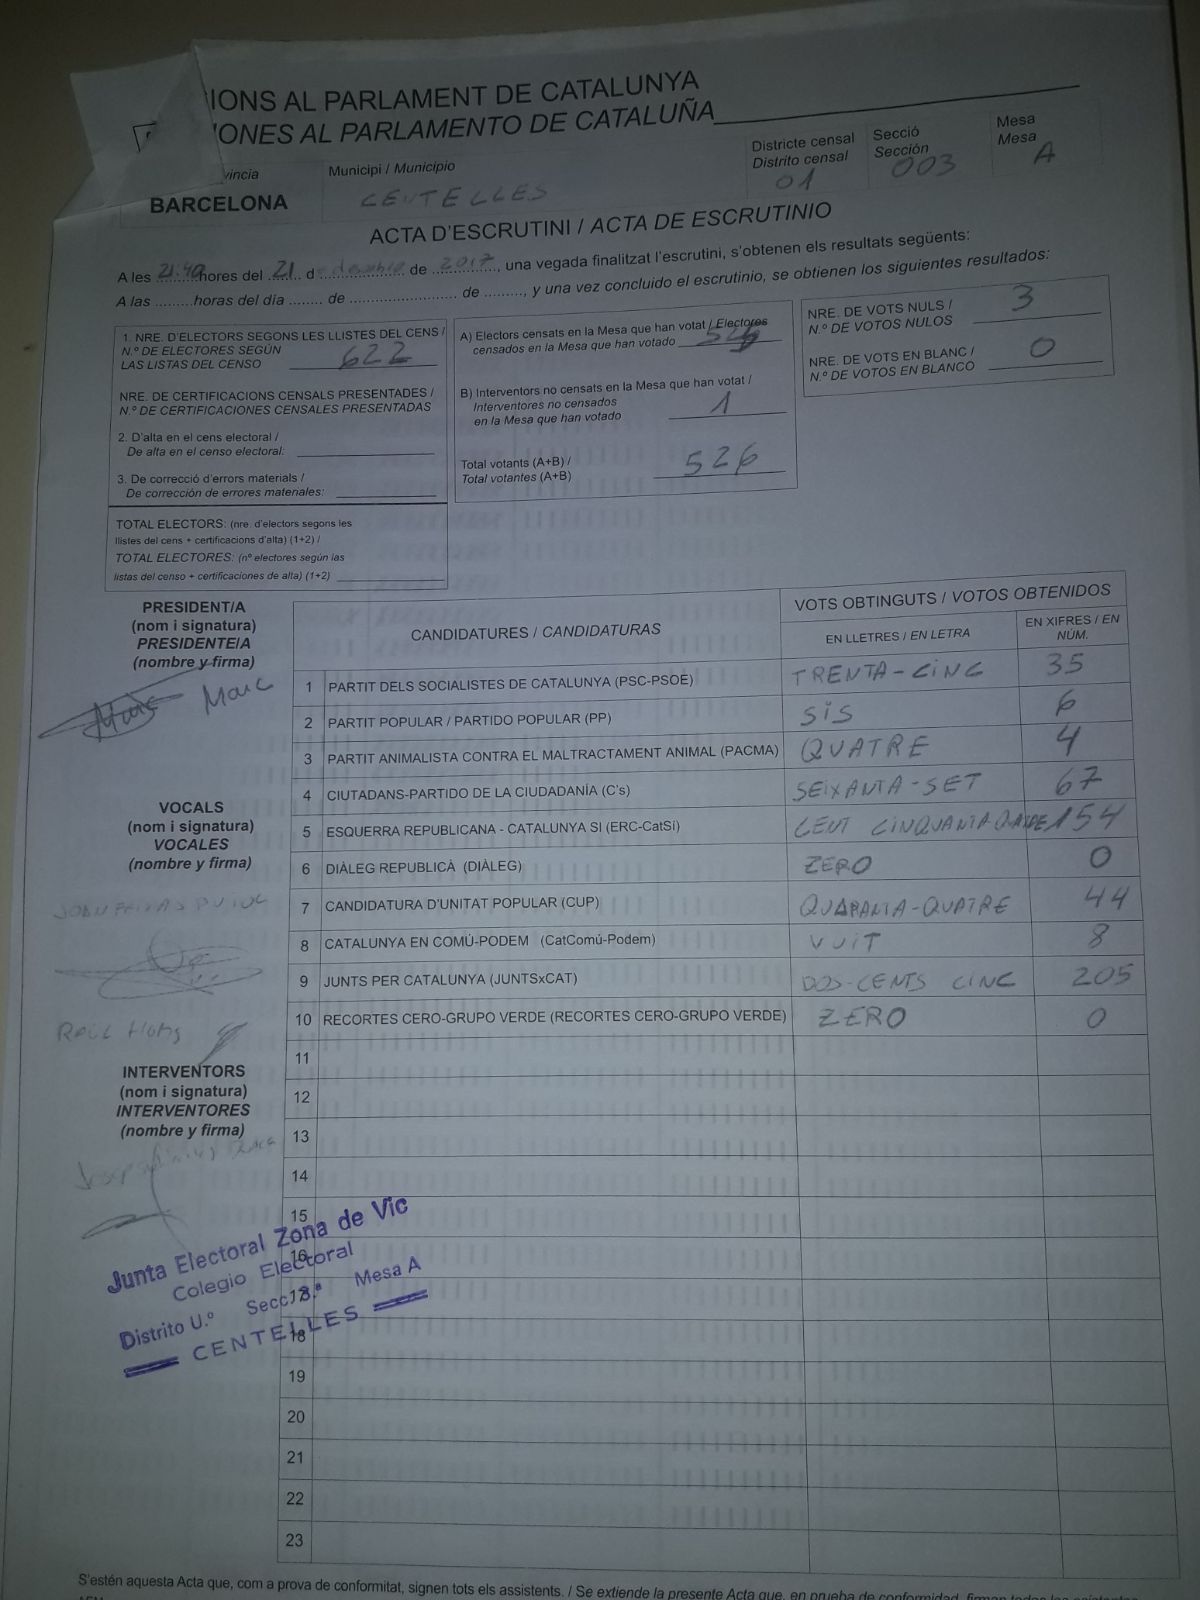 IONS AL PARLAMENT DE CATALUNYA
IONES AL PARLAMENTO DE CATALUÑA
vincia
BARCELONA
Municipi / Municipio
CENTELLES
Districte censal
Distrito censal
01
Secció
Sección
003
Mesa
Mesa
A
ACTA D'ESCRUTINI / ACTA DE ESCRUTINIO
A les 21:40 hores del 21 d desembre de 2017, una vegada finalitzat l'escrutini, s'obtenen els resultats següents:
A las ......... horas del día ........ de ........................ de ........., y una vez concluido el escrutinio, se obtienen los siguientes resultados:
1. NRE. D'ELECTORS SEGONS LES LLISTES DEL CENS /
N.º DE ELECTORES SEGÚN
LAS LISTAS DEL CENSO 622
NRE. DE CERTIFICACIONS CENSALS PRESENTADES /
N.º DE CERTIFICACIONES CENSALES PRESENTADAS
2. D'alta en el cens electoral /
De alta en el censo electoral:
3. De correcció d'errors materials /
De corrección de errores materiales:
TOTAL ELECTORS: (nre. d'electors segons les
llistes del cens + certificacions d'alta) (1+2) /
TOTAL ELECTORES: (nº electores según las
listas del censo + certificaciones de alta) (1+2)
A) Electors censats en la Mesa que han votat / Electores
censados en la Mesa que han votado
B) Interventors no censats en la Mesa que han votat /
Interventores no censados
en la Mesa que han votado 1
Total votants (A+B) /
Total votantes (A+B) 526
NRE. DE VOTS NULS /
N.º DE VOTOS NULOS 3
NRE. DE VOTS EN BLANC /
N.º DE VOTOS EN BLANCO 0
PRESIDENT/A
(nom i signatura)
PRESIDENTE/A
(nombre y firma)
Marc Marc
VOCALS
(nom i signatura)
VOCALES
(nombre y firma)
INTERVENTORS
(nom i signatura)
INTERVENTORES
(nombre y firma)
CANDIDATURES / CANDIDATURAS
VOTS OBTINGUTS / VOTOS OBTENIDOS
EN LLETRES / EN LETRA
EN XIFRES / EN
NÚM.
1 PARTIT DELS SOCIALISTES DE CATALUNYA (PSC-PSOE) TRENTA-CINC 35
2 PARTIT POPULAR / PARTIDO POPULAR (PP) SIS 6
3 PARTIT ANIMALISTA CONTRA EL MALTRACTAMENT ANIMAL (PACMA) QUATRE 4
4 CIUTADANS-PARTIDO DE LA CIUDADANÍA (C's) SEIXANTA-SET 67
5 ESQUERRA REPUBLICANA - CATALUNYA SI (ERC-CatSí) CENT CINQUANTA 154
6 DIÀLEG REPUBLICÀ (DIÀLEG) ZERO 0
7 CANDIDATURA D'UNITAT POPULAR (CUP) QUARANTA-QUATRE 44
8 CATALUNYA EN COMÚ-PODEM (CatComú-Podem) VUIT 8
9 JUNTS PER CATALUNYA (JUNTSxCAT) DOS-CENTS CINC 205
10 RECORTES CERO-GRUPO VERDE (RECORTES CERO-GRUPO VERDE) ZERO 0
11
12
13
14
15
16
17
18
19
20
21
22
23
Junta Electoral Zona de Vic
Colegio Electoral
Distrito U.º Secc. 3.ª Mesa A
CENTELLES
S'estén aquesta Acta que, com a prova de conformitat, signen tots els assistents. / Se extiende la presente Acta que, en prueba de conformidad, firman todos los asistentes